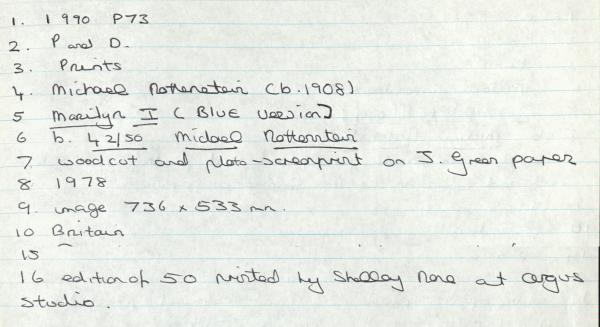 1. 1990 P73
2. P and D.
3. Prints
4. Michael Rothenstein (b.1908)
5 Marilyn I (BLUE version)
6 b. 42/50 Michael Rothenstein
7 woodcut and photo-screenprint on J. Green paper
8 1978
9. image 736 x 533 mm.
10 Britain
15
16 edition of 50 printed by Shelley Rose at argus
studio.